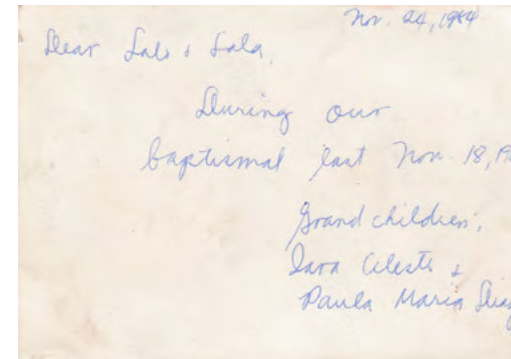 Nov. 24, 1984
Dear Lalo & Lala,
During our
baptismal last Nov. 18, 19
Grand children,
Sara Celeste &
Paula Maria